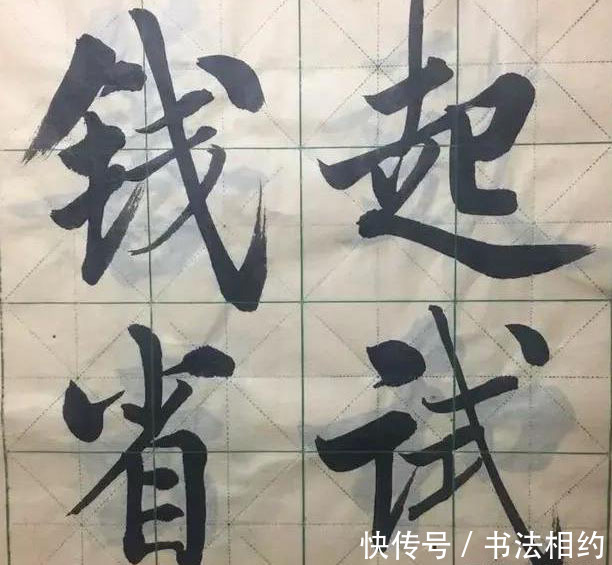 钱起
省试
快传号 / 书法相约